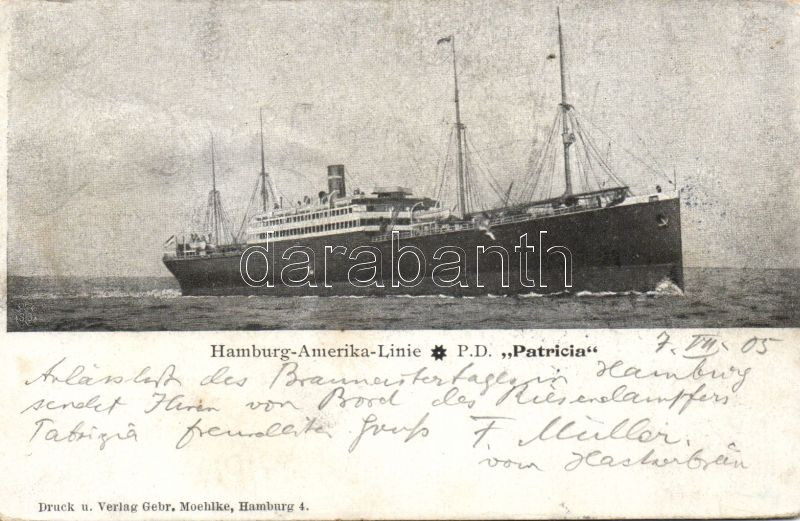 darabanth
Hamburg-Amerika-Linie ✸ P.D. „Patricia“
7. VII. 05
Anlässlich des Braumeistertages in Hamburg
sendet Ihnen von Bord des Riesendampfers
Patrizia freundlichen Gruß F. Müller.
vom Hackerbräu
Druck u. Verlag Gebr. Moehlke, Hamburg 4.